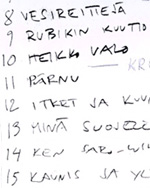 8 VESIREITTEJÄ
9 RUBIKIN KUUTIO
10 HEIKKO VALO
KR
11 PÄRNU
12 ITKET JA KUU
13 MINÄ SUOJELE
14 KEN SARO-WI
15 KAUNIS JA YL